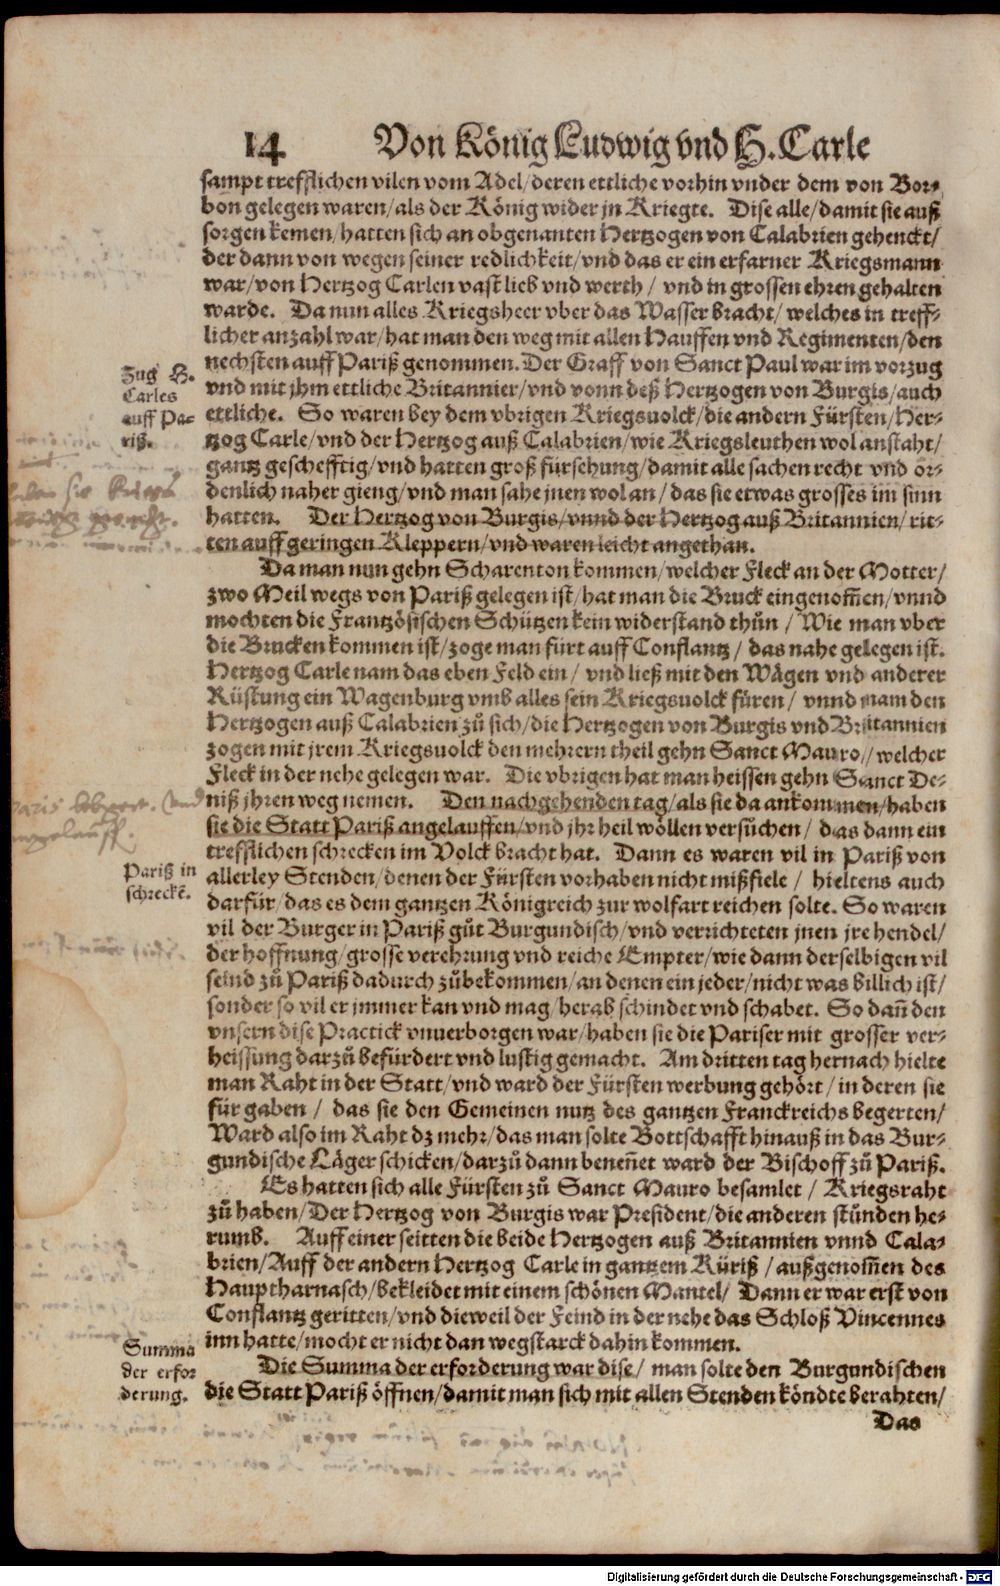 14 Von König Ludwig vnd H. Carle
sampt trefflichen vilen vom Adel/deren ettliche vorhin vnder dem von Bor-
bon gelegen waren/als der König wider jn Kriegte. Dise alle/damit sie auß
sorgen kemen/hatten sich an obgenanten Hertzogen von Calabrien gehenckt/
der dann von wegen seiner redlichkeit/vnd das er ein erfarner Kriegsmann
war/von Hertzog Carlen vast lieb vnd werth/ vnd in grossen ehren gehalten
warde. Da nun alles Kriegsheer vber das Wasser bracht/welches in treff-
licher anzahl war/hat man den weg mit allen Hauffen vnd Regimenten/den
nechsten auff Pariß genommen. Der Graff von Sanct Paul war im vorzug
Zug H.
Carles
auff Pa-
riß.
vnd mit jhm ettliche Britannier/vnd vonn deß Hertzogen von Burgis/auch
ettliche. So waren bey dem vbrigen Kriegsuolck/die andern Fürsten/Her-
tzog Carle/vnd der Hertzog auß Calabrien/wie Kriegsleuthen wol anstaht/
gantz geschefftig/vnd hatten groß fürsehung/damit alle sachen recht vnd or-
denlich naher gieng/vnd man sahe jnen wol an/das sie etwas grosses im sinn
hatten. Der Hertzog von Burgis/vnnd der Hertzog auß Britannien/rit-
ten auff geringen Kleppern/vnd waren leicht angethan.
Da man nun gehn Scharenton kommen/welcher Fleck an der Motter/
zwo Meil wegs von Pariß gelegen ist/hat man die Bruck eingenom̄en/vnnd
mochten die Frantzösischen Schützen kein widerstand thůn/Wie man vber
die Brucken kommen ist/zoge man fürt auff Conflantz/das nahe gelegen ist.
Hertzog Carle nam das eben Feld ein/ vnd ließ mit den Wägen vnd anderer
Rüstung ein Wagenburg vmb alles sein Kriegsuolck füren/ vnnd nam den
Hertzogen auß Calabrien zů sich/die Hertzogen von Burgis vnd Britannien
zogen mit jrem Kriegsuolck den mehrern theil gehn Sanct Mauro/welcher
Fleck in der nehe gelegen war. Die vbrigen hat man heissen gehn Sanct De-
niß jhren weg nemen. Den nachgehenden tag/als sie da ankommen/haben
sie die Statt Pariß angelauffen/vnd jhr heil wöllen versuchen/das dann ein
trefflichen schrecken im Volck bracht hat. Dann es waren vil in Pariß von
Pariß in
schreckē.
allerley Stenden/denen der Fürsten vorhaben nicht mißfiele/ hieltens auch
darfür/das es dem gantzen Königreich zur wolfart reichen solte. So waren
vil der Burger in Pariß gůt Burgundisch/vnd verrichteten jnen jre hendel/
der hoffnung/grosse verehrung vnd reiche Empter/wie dann derselbigen vil
seind zů Pariß dadurch zůbekommen/an denen ein jeder/nicht was billich ist/
sonder so vil er jmmer kan vnd mag/herab schindet vnd schabet. So dañ den
vnsern dise Practick vnuerborgen war/haben sie die Pariser mit grosser ver-
heissung darzů befürdert vnd lustig gemacht. Am dritten tag hernach hielte
man Raht in der Statt/vnd ward der Fürsten werbung gehört/in deren sie
für gaben/ das sie den Gemeinen nutz des gantzen Franckreichs begerten/
Ward also im Raht dz mehr/das man solte Bottschafft hinauß in das Bur-
gundische Läger schicken/darzů dann beneñet ward der Bischoff zů Pariß.
Es hatten sich alle Fürsten zů Sanct Mauro besamlet/ Kriegsraht
zů haben/Der Hertzog von Burgis war President/die anderen stůnden he-
rumb. Auff einer seitten die beide Hertzogen auß Britannien vnnd Cala-
brien/Auff der andern Hertzog Carle in gantzem Küriß/außgenom̄en des
Hauptharnasch/bekleidet mit einem schönen Mantel/ Dann er war erst von
Conflantz geritten/vnd dieweil der Feind in der nehe das Schloß Vincennes
inn hatte/mocht er nicht dan wegstarck dahin kommen.
Summa
der erfor
derung.
Die Summa der erforderung war dise/ man solte den Burgundischen
die Statt Pariß öffnen/damit man sich mit allen Stenden köndte berahten/
Das
Digitalisierung gefördert durch die Deutsche Forschungsgemeinschaft - DFG